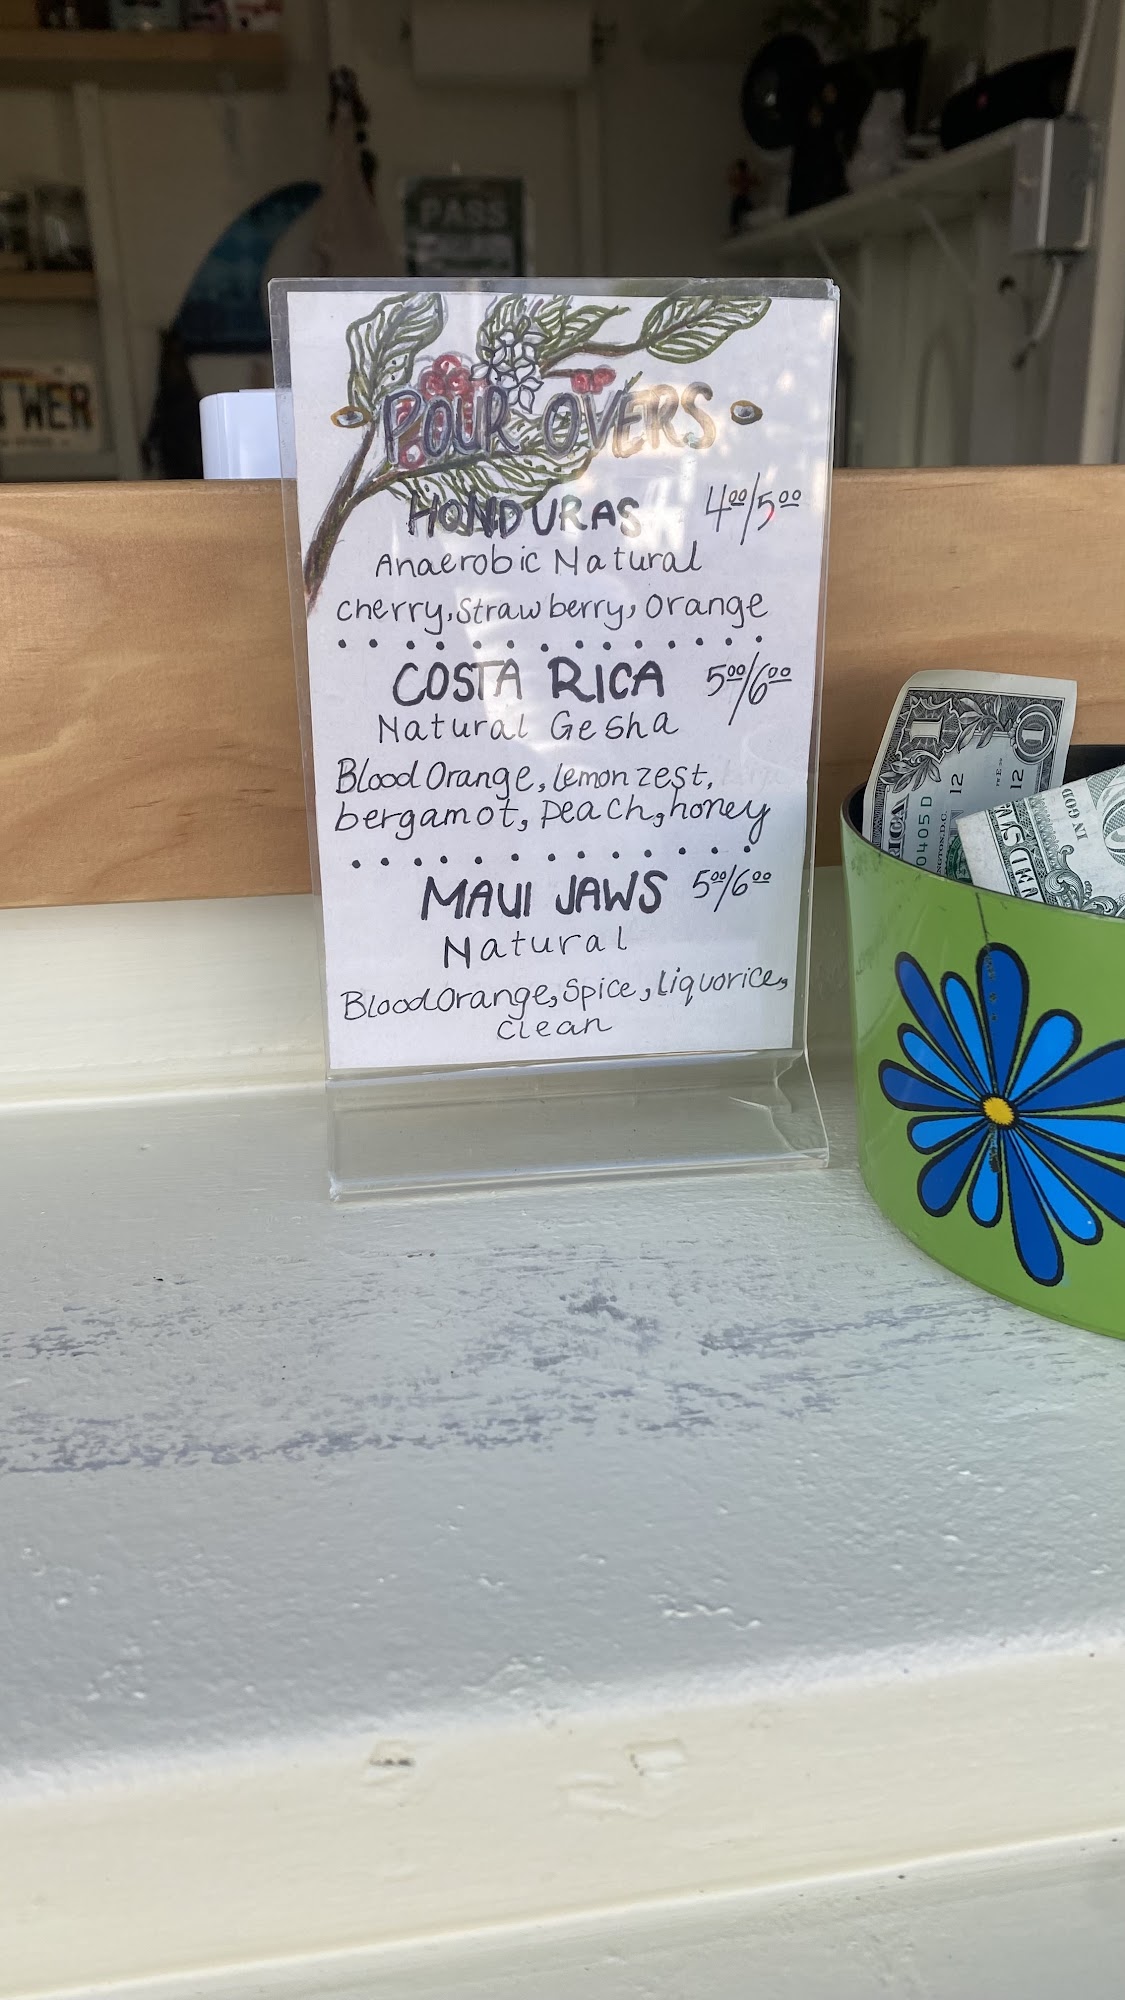 PASS
POUR OVERS
HONDURAS 4.00/5.00
Anaerobic Natural
cherry, Strawberry, Orange
COSTA RICA 5.00/6.00
Natural Gesha
Blood Orange, lemon zest,
bergamot, peach, honey
MAUI JAWS 5.00/6.00
Natural
Blood Orange, Spice, Liquorice,
Clean
1
12
12
0405D
IN GOD